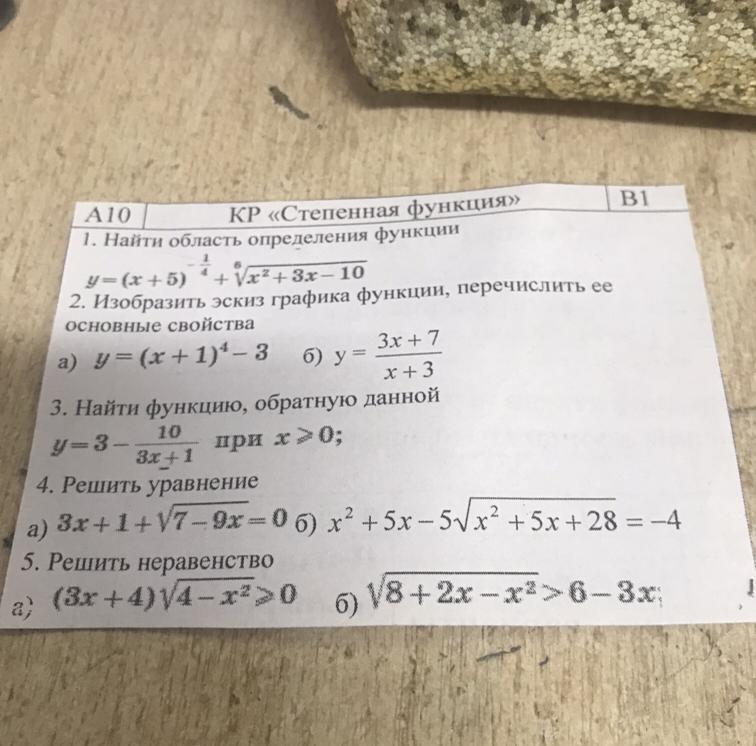 А10 КР «Степенная функция» В1
1. Найти область определения функции
y=(x+5)^{-\frac{1}{4}}+\sqrt[6]{x²+3x−10}
2. Изобразить эскиз графика функции, перечислить ее
основные свойства
а) y=(x+1)⁴−3 б) y=\frac{3x+7}{x+3}
3. Найти функцию, обратную данной
y=3−\frac{10}{3x+1} при x⩾0;
4. Решить уравнение
а) 3x+1+\sqrt{7−9x}=0 б) x²+5x−5\sqrt{x²+5x+28}=−4
5. Решить неравенство
а) (3x+4)\sqrt{4−x²}⩾0 б) \sqrt{8+2x−x²}>6−3x;